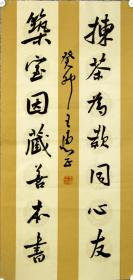 揀茶為款同心友
築室因藏善本書
癸卯